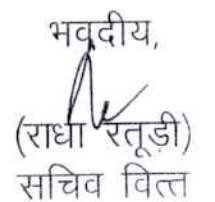 भवदीय,
(राधा रतूड़ी)
सचिव वित्त